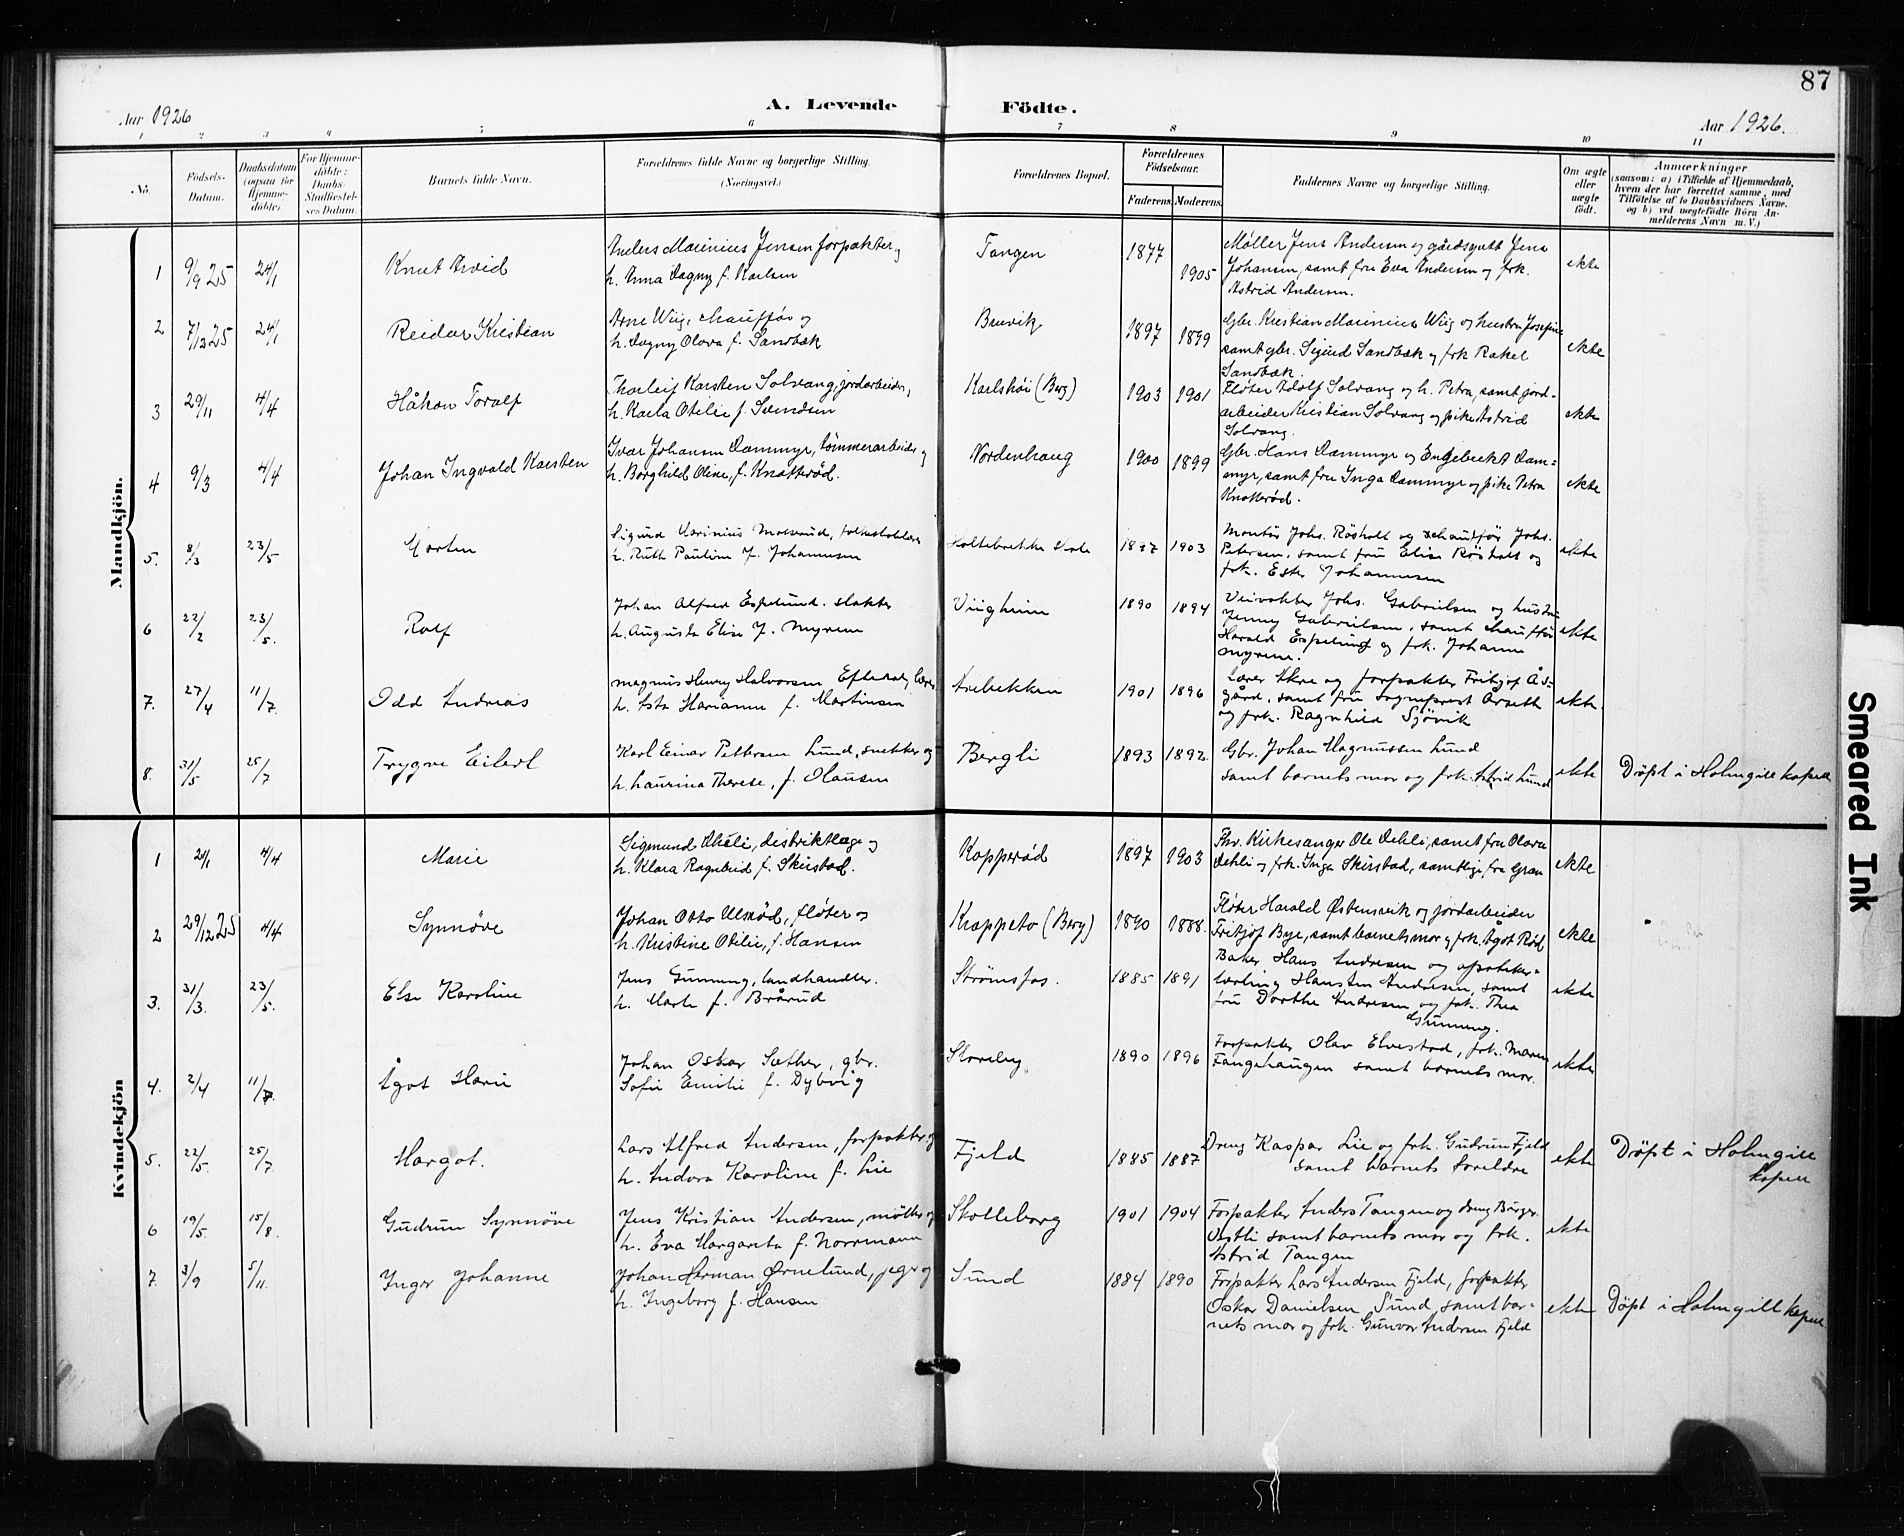 87
Aar 1926
A. Levende Födte.
Aar 1926.
1 2 3 4 5 6 7 8 9 10 11
No.
Födsels-Datum.
Daabsdatum (ogsaa for Hjemmedöbte).
For Hjemmedöbte: Daabs-Stadfæstelses Datum.
Barnets fulde Navn.
Forældrenes fulde Navne og borgerlige Stilling.
(Næringsvei.)
Forældrenes Bopæl.
Forældrenes Födselsaar.
Faderens. Moderens.
Faddernes Navne og borgerlige Stilling.
Om ægte eller uægte födt.
Anmærkninger
(saasom: a) i Tilfælde af Hjemmedaab, hvem der har forrettet samme, med Tilföielse af to Daabsvidners Navne. og b) ved uægtefödte Börn Anmelderens Navn m. V.)
Mandkjön.
1 9/9 25 24/1 Knut Arvid
Anders Marinius Jensen forpakter og
h. Anna Dagny f. Karlsen
Tangen 1877 1905
Møller Jens Andersen og gårdsgutt Jens
Johansen, samt fru Eva Andersen og frk.
Astrid Andersen.
ekte
2 7/12 25 24/1 Reidar Kristian
Arne Wiig, chauffør og
h. Dagny Olava f. Sandbæk
Bruvik 1897 1899
Gbr. Kristian Marinius Wiig og hustru Josefine
samt gbr. Sigurd Sandbæk og frk Rakel
Sandbæk.
ekte
3 29/11 4/4 Håkon Toralf
Thorleif Karsten Solvang, jordarbeider,
h. Karla Otilie f. Svendsen
Karlshøi (Berg) 1903 1901
Fløter Adolf Solvang og h. Petra, samt jord-
arbeider Kristian Solvang og pike Astrid
Solvang.
ekte
4 9/3 4/4 Johan Ingvald Karsten
Ivar Johansen Dammyr, tømmerarbeider og
h. Borghild Oline, f. Knatterød.
Nordenhaug 1900 1899
Gbr. Hans Dammyr og Engebrekt Dam-
myr, samt fru Inga Dammyr og pike Petra
Knatterød.
ekte
5. 8/3 23/5 Morten
h. Ruth Pauline f. Johannesen
1903
Montør Johs. Røsholt og chauffør Johs.
Petersen, samt fru Elise Røsholt og
frk. Ester Johannesen
ekte
6 22/2 23/5. Rolf
Johan Alfred Espelund. slakter
h. Augusta Elise f. Myrene
1890 1894
Veivokter Johs. Gabrielsen og hustru
Jenny Gabrielsen, samt chauffør
Harald Espelund og frk. Johanne
Myrene.
ekte
7. 27/4 11/7. Odd Andreas
h. Asta Marianne f. Martinsen
Arebekken 1901 1896
Lærer Akre og forpakter Fritjof Ås-
gård, samt fru sogneprest Arseth
og frk. Ragnhild Sjøvik
ekte.
8. 31/5 25/7 Trygve Eilert
Karl Einar Pettersen Lund, snekker og
h. Laurina Therese, f. Olausen
Bergli 1893 1892.
Gbr. Johan Magnussen Lund
samt barnets mor og frk. Astrid Lund
ekte
Döpt i Holmgill kapell
Kvindekjön
1 21/1 4/4 Marie
Sigmund Dæhli, distriktlæge og
h. Klara Ragnhild f. Skirstad.
Kopperød 1897 1903
Fhv. Kirkesanger Ole Dehli, samt fru Olava
Dehli og frk. Inga Skirstad, samtlige fra Gran
ekte
2 29/12 25 4/4 Synnøve
Johan Otto Ulsrød, fløter og
h. Kristine Otilie, f. Hansen
Krappeto (Berg) 1890 1888.
Fløter Harald Østensvik og jordarbeider
Fritjof Bye, samt barnets mor og frk. Ågot Rød
ekte
3. 31/3 23/5. Else Karoline
Jens Gunneng, landhandler.
h. Marte f. Brårud
Strømsfos. 1885 1891
Baker Hans Andresen og apoteker-
lærling Hans Andresen, samt
fru Dorthe Andresen og frk. Thea
Gunneng.
ekte
4. 2/4 11/7. Ågot Marie
Johan Oskar Sæther, gbr.
Sofie Emilie f. Dybvig
Storeby 1890 1896
Forpakter Olav Elvestad, frk. Maren
Fangehaugen samt barnets mor.
ekte
5. 22/5. 25/7. Margot.
Lars Alfred Andersen, forpakter og
h. Andora Karoline f. Lie
Fjeld 1885 1887
Dreng Kaspar Lie og frk. Gudrun Fjeld
samt barnets foreldre
ekte
Döpt i Holmgill
kapell
6 19/5. 15/8. Gudrun Synnöve
Jens Kristian Andersen, møller og
h. Eva Margareta f. Norrmann
Skolleborg 1901 1904
Forpakter Anders Tangen og dreng Birger
Vestli samt barnets mor og frk.
Astrid Tangen
ekte
7. 3/9 5/11. Inger Johanne
Johan Herman Ørnelund, jeger og
h. Ingeborg f. Hansen
Sund 1884 1890
Forpakter Lars Andersen Fjeld, forpakter
Oskar Danielsen Sund, samt bar-
nets mor og frk. Gunvor Andersen Fjeld
ekte
Döpt i Holmgill kapell.
Smeared Ink